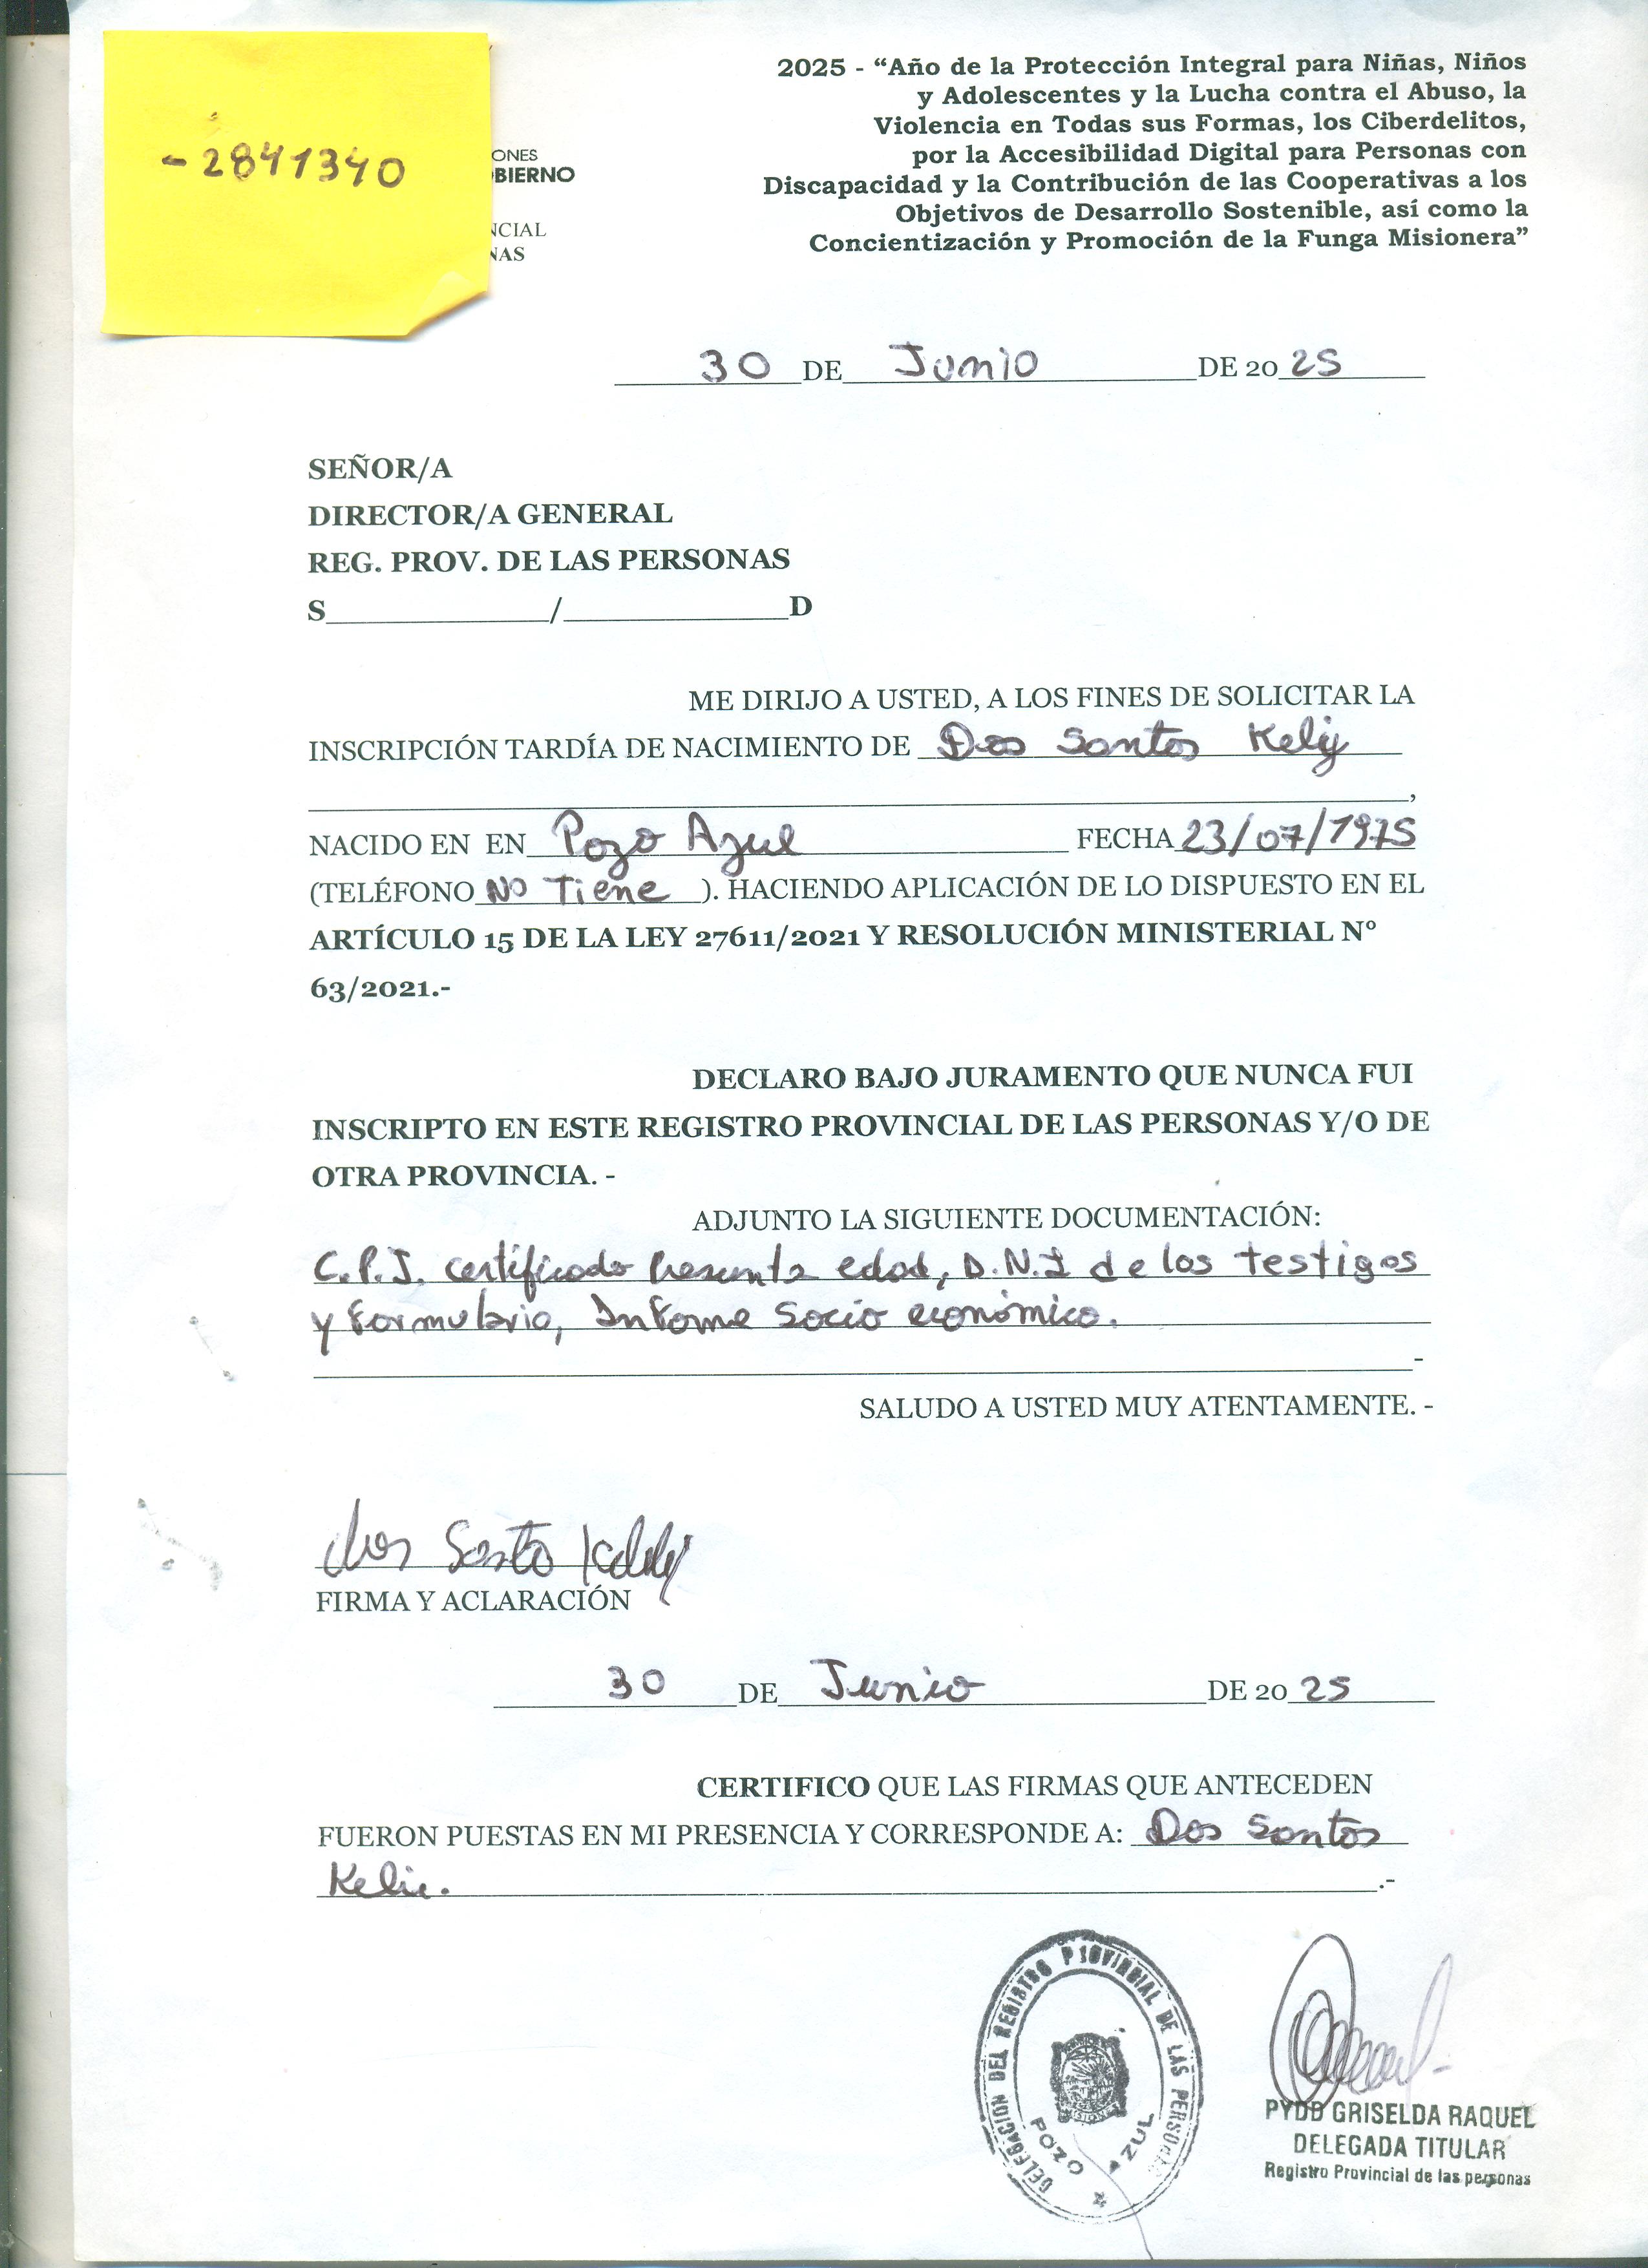 -2841340
ONES
BIERNO
NCIAL
NAS
2025 - “Año de la Protección Integral para Niñas, Niños
y Adolescentes y la Lucha contra el Abuso, la
Violencia en Todas sus Formas, los Ciberdelitos,
por la Accesibilidad Digital para Personas con
Discapacidad y la Contribución de las Cooperativas a los
Objetivos de Desarrollo Sostenible, así como la
Concientización y Promoción de la Funga Misionera”
30 DE Junio DE 2025
SEÑOR/A
DIRECTOR/A GENERAL
REG. PROV. DE LAS PERSONAS
S______________/______________D
ME DIRIJO A USTED, A LOS FINES DE SOLICITAR LA
INSCRIPCIÓN TARDÍA DE NACIMIENTO DE Dos Santos Kely
,
NACIDO EN EN Pozo Azul FECHA 23/07/1975
(TELÉFONO No Tiene ). HACIENDO APLICACIÓN DE LO DISPUESTO EN EL
ARTÍCULO 15 DE LA LEY 27611/2021 Y RESOLUCIÓN MINISTERIAL Nº
63/2021.-
DECLARO BAJO JURAMENTO QUE NUNCA FUI
INSCRIPTO EN ESTE REGISTRO PROVINCIAL DE LAS PERSONAS Y/O DE
OTRA PROVINCIA. -
ADJUNTO LA SIGUIENTE DOCUMENTACIÓN:
C.P.I. certificado Presunta edad, D.N.I de los testigos
y Formulario, Informe Socio económico.
-
SALUDO A USTED MUY ATENTAMENTE. -
dos Santo Kelly
FIRMA Y ACLARACIÓN
30 DE Junio DE 2025
CERTIFICO QUE LAS FIRMAS QUE ANTECEDEN
FUERON PUESTAS EN MI PRESENCIA Y CORRESPONDE A: Dos Santos
Kelie. .-
DELEGACION DEL REGISTRO PROVINCIAL DE LAS PERSONAS
POZO AZUL
PYDD GRISELDA RAQUEL
DELEGADA TITULAR
Registro Provincial de las personas